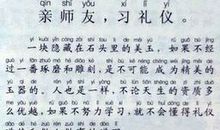 qīn shī yǒu xí lǐ yí
亲师友，习礼仪。
yí kuài yǐn cáng zài shí tou lǐ de měi yù rú guǒ bù jīng
一块隐藏在石头里的美玉，如果不经
guò yì fān zhuó mó hé diāo kè shì bù kě néng chéng wéi jīng měi de
过一番琢磨和雕刻，是不可能成为精美的
yù qì de rén yě shì yí yàng bú lùn tiān shēng de zī zhì duō
玉器的。人也是一样，不论天生的资质多
me yōu yuè rú guǒ bù nǔ lì xué xí jiù bú huì dǒng de lǐ yí
么优越，如果不努力学习，就会不懂得礼仪